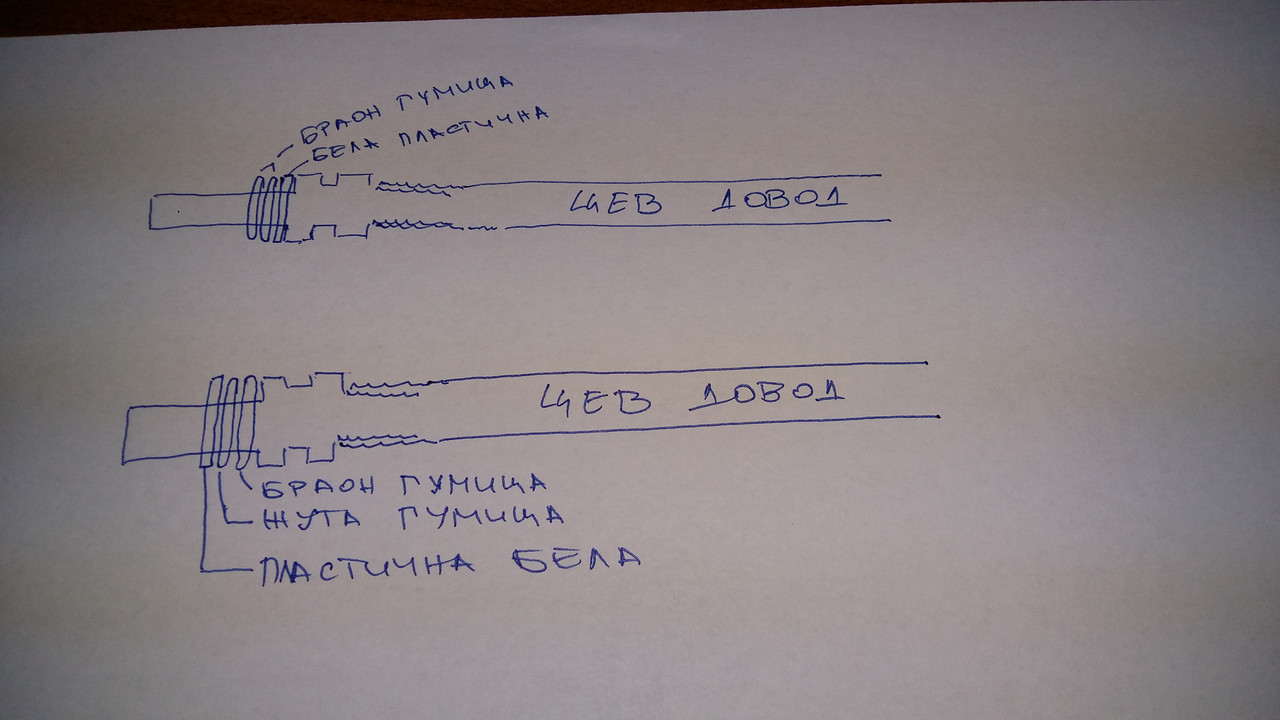 БРАОН ГУМИЦА
БЕЛА ПЛАСТИЧНА
ЦЕВ ДОВОД
ЦЕВ ДОВОД
БРАОН ГУМИЦА
ЖУТА ГУМИЦА
ПЛАСТИЧНА БЕЛА